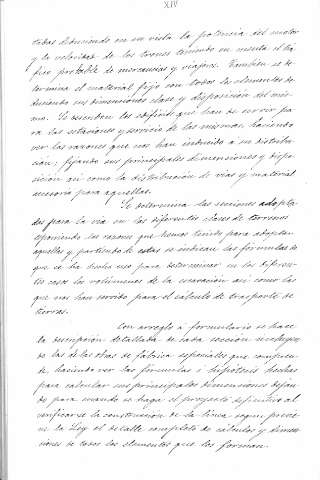 XIV
todas deduciendo en su vista la potencia del motor
y la velocidad de los trenes teniendo en cuenta el trá-
fico probable de mercancías y viajeros. Tambien se de-
termina el material fijo con todos los elementos de-
duciendo sus dimensiones clase y disposición del mis-
mo. Se describen los edificios que han de servir pa-
ra las estaciones y servicio de las mismas, haciendo
ver las razones que nos han inducido a su distribu-
ción; fijando sus principales dimensiones y dispo-
sición asi como la distribución de vias y material
accesorio para aquellas.
Se determina las secciones adopta-
das para la via en las diferentes clases de terrenos
esponiendo las razones que hemos tenido para adoptar
aquellas y partiendo de estas se indican las fórmulas de
que se ha hecho uso para determinar en los diferen-
tes casos los volumenes de la escavación asi como las
que nos han servido para el calculo de trasporte de
tierras.
Con arreglo a formulario se hace
la descripción detallada de cada sección
de las de las obras de fábrica especiales que compren-
de, haciendo ver las fórmulas é hipótesis hechas
para calcular sus principales dimensiones dejan-
do para cuando se haga el proyecto definitivo al
verificarse la construcción de la linea segun previe-
ne la Ley el detalle completo de cálculos y dimen-
siones de todos los elementos que las forman.